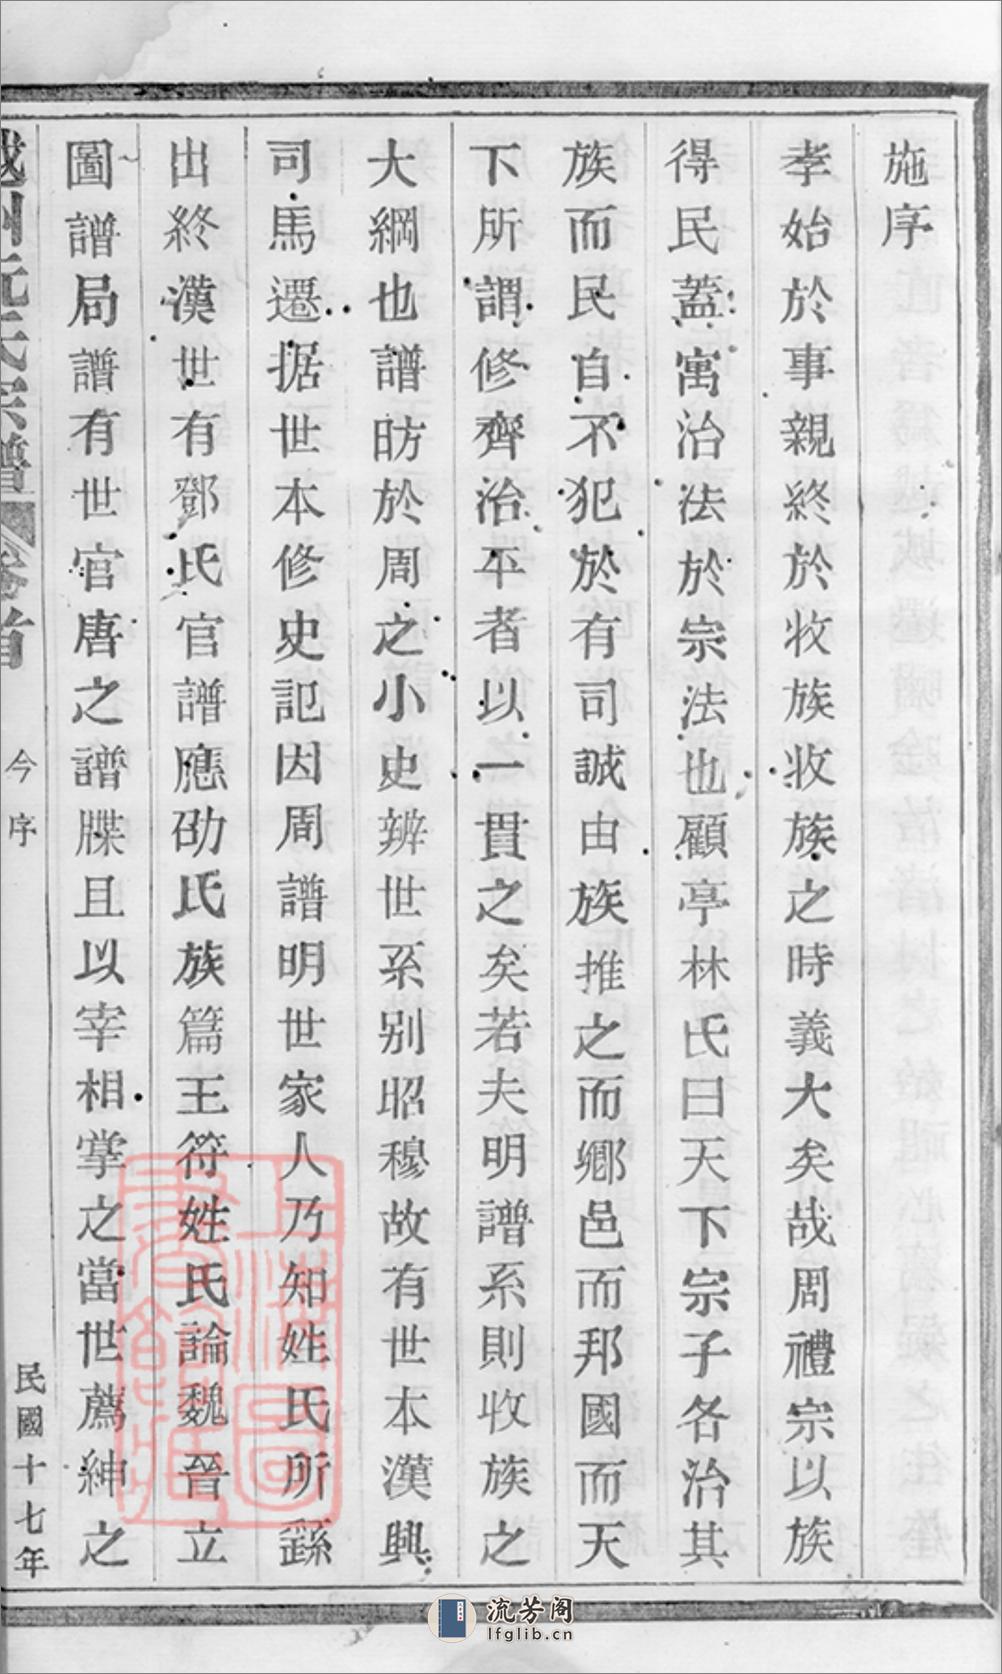 施序
孝始於事親終於收族收族之時義大矣哉周禮宗以族
得民蓋寓治法於宗法也顧亭林氏曰天下宗子各治其
族而民自不犯於有司誠由族推之而鄉邑而邦國而天
下所謂修齊治平者以一貫之矣若夫明譜系則收族之
大綱也譜昉於周之小史辨世系别昭穆故有世本漢興
司馬遷据世本修史記因周譜明世家人乃知姓氏所繇
出終漢世有鄧氏官譜應劭氏族篇王符姓氏論魏晉立
圖譜局譜有世官唐之譜牒且以宰相掌之當世薦紳之
越州阮氏宗譜 卷首 今序 民國十七年
上海圖書館藏
流芳阁
lfglib.cn